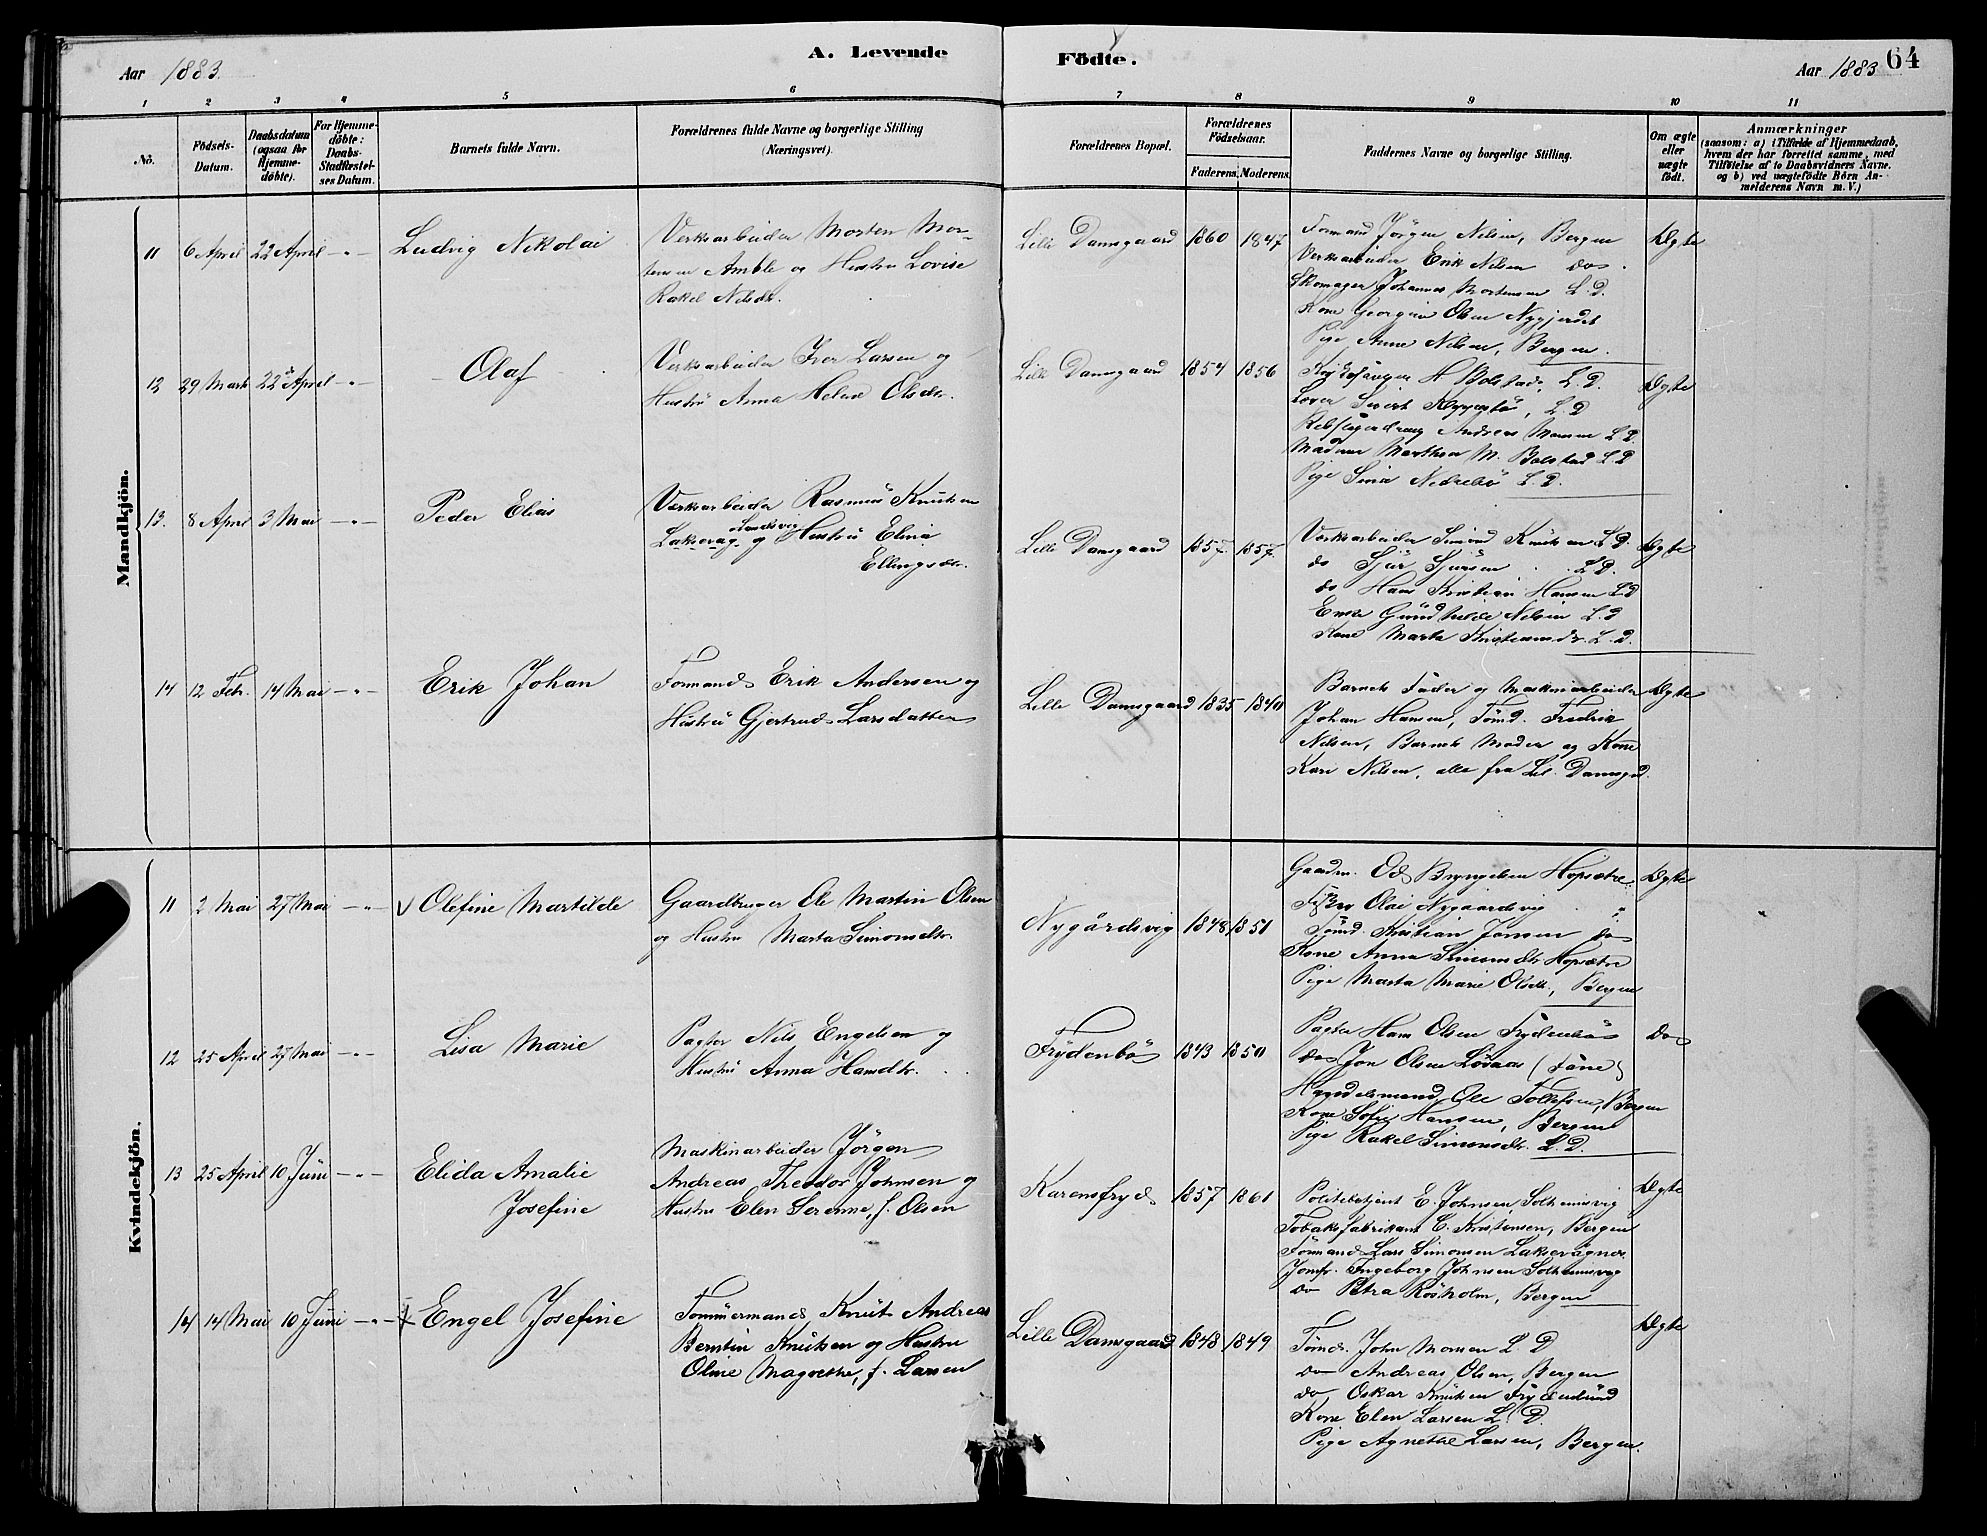 A. Levende Födte.
64
Aar 1883.
Aar 1883
1 2 3 4 5 6 7 8 9 10 11
No.
Födsels-Datum.
Daabsdatum (ogsaa for Hjemme-döbte).
For Hjemme-döbte: Daabs-Stadfæstel-ses Datum.
Barnets fulde Navn.
Forældrenes fulde Navne og borgerlige Stilling
(Næringsvei).
Forældrenes Bopæl.
Forældrenes Födselsaar.
Faderens. Moderens.
Faddernes Navne og borgerlige Stilling.
Om ægte eller uægte födt.
Anmærkninger
(saasom: a) i Tilfælde af Hjemmedaab,
hvem der har forrettet samme, med
Tilföielse af to Daabsvidners Navne.
og b) ved uægtefödte Börn An-
melderens Navn m. V.)
Mandkjön.
11 6 April 22 April -"- Ludvig Nikolai
Verksarbeider Morten Mor-
tensen Amble og Hustru Lovise
Rakel Nilsdr.
Lille Damsgaard 1860 1847
Formand Jörgen Nilsen, Bergen
Verksarbeider Erik Nilsen do
Skomager Johannes Mortensen L.D.
Kone Georgine Olsen Nygjerdet
Pige Anne Nilsen, Bergen.
Ægte
12 29 Marts 22 April -"- Olaf
Verksarbeider Iver Larsen og
Hustru Anna Helene Olsdr.
Lille Damsgaard 1854 1856
H Bolstad, L.D.
Sivert L.D
Rebslagerdreng Andreas Monsen L.D.
Madame Marthea M. Bolstad L.D
Pige Sina Nedrebö L.D.
Ægte
13. 8 April 3 Mai -"- Peder Elias
Verksarbeider Rasmus Knutsen
Laksevag. Sandvig og Hustru Elina
Ellingsdr.
Lille Damsgaard 1857. 1857.
Verksarbeider Simon Knutsen L.D.
do Sjur Sjursen L.D.
do Hans Kristian Hansen L.D
Enke Gundhilde Nilsen L.D
Kone Marta Kristiansdr. L.D.
Ægte
14 12 Febr. 14 Mai -"- Erik Johan
Formand Erik Andersen og
Hustru Gjertrud Larsdatter
Lille Damsgaard 1835 1840
Barnets Fader og Maskinarbeider
Johan Hansen, Tömd. Fredrik
Nilsen, Barnets Moder og Kone
Kari Nilsen, alle fra Lil. Damsgd.
Ægte
Kvindekjön.
11 2 Mai 27 Mai -"- Olefine Martilde
Gaardbruger Ole Martin Olsen
og Hustru Marta Simonsdtr.
Nygårdsvig 1848 1851
Gaardm. Od Bryngelsen Hopsætre
Olai Nygaardsvig "
Tömd. Kristian Jansen do
Kone Anna Simonsdtr Hopsætre
Pige Marta Marie Olsdtr., Bergen
Ægte
12 25 April 27 Mai -"- Lisa Marie
Pagter Nils Engelsen og
Hustru Anna Hansdtr.
Frydenbö 1843 1850
Pagter Hans Olsen Frydenbö
do Jon Olsen Lövaas (Fane)
Handelsmand Ole Tollefsen, Bergen
Kone Sofie Hansen, Bergen
Pige Rakel Simonsdtr. L.D.
Do
13 25 April 10 Juni -"- Elida Amalie
Josefine
Maskinarbeider Jörgen
Andreas Theodor Johnsen og
Hustru Elen Serenne, f. Olsen
Karensfryd 1857 1861
Politibetjent E. Johnsen Solheimsvig
Tobaksfabrikant C. Kristensen, Bergen
Formand Lars Simonsen Laksevågnes
Jomfr. Ingeborg Johnsen Solheimsvig
do Petra Rösholm, Bergen
Ægte
14 14 Mai 10 Juni -"- Engel Josefine
Tömmermand Knut Andreas
Berntin Knutsen og Hustru
Oline Magrethe, f. Larsen
Lille Damsgaard 1848 1849
Tömd. John Monsen L D
do Andreas Olsen, Bergen
do Oskar Knutsen Frydenlund
Kone Elen Larsen L.D.
Pige Agnethe Larsen, Bergen.
Ægte